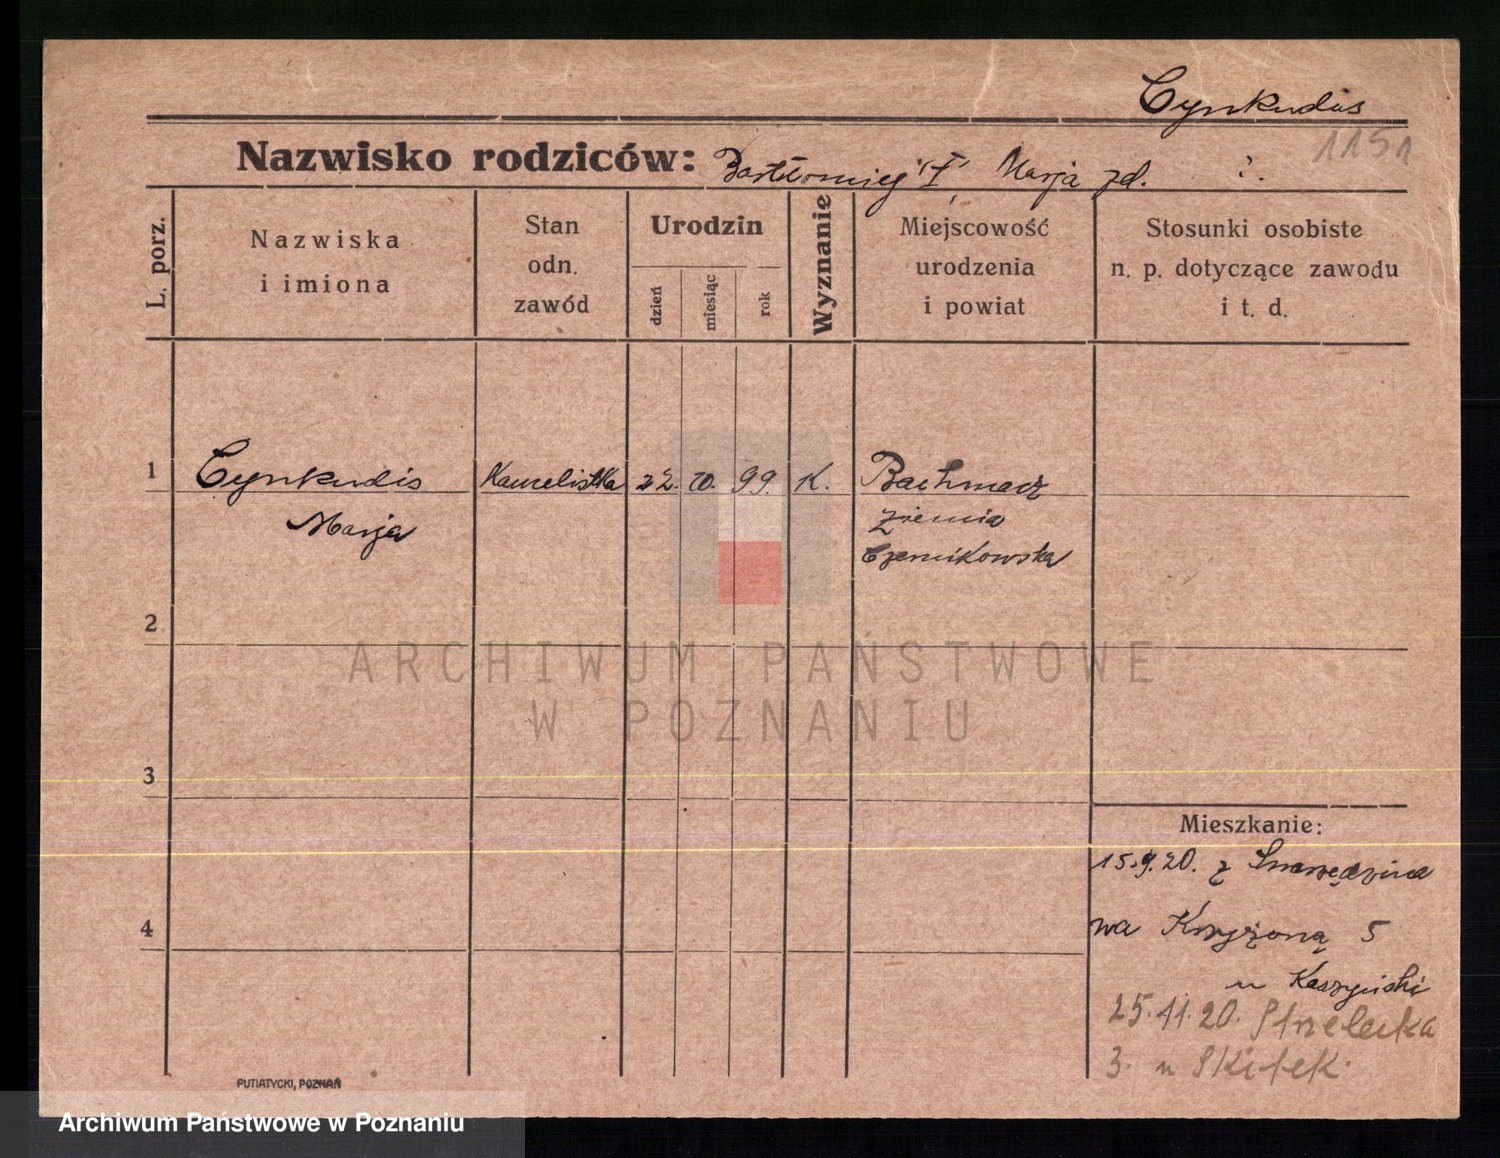 Cynkudis
1151
Nazwisko rodziców: Bartłomiej Marja zd. i.
L. porz.
Nazwiska
i imiona
Stan
odn.
zawód
Urodzin
dzień
miesiąc
rok
Wyznanie
Miejscowość
urodzenia
i powiat
Stosunki osobiste
n. p. dotyczące zawodu
i t. d.
1 Cynkudis 22. 10. 99. K. Bachmacz
Marja ziemia
Czernikowska
2
ARCHIWUM PAŃSTWOWE
W POZNANIU
3
Mieszkanie:
15.9.20. z
4 na Krzyżoną 5
u
25.11.20. Strzelecka
3. u Skitek.
PUTIATYCKI, POZNAŃ
Archiwum Państwowe w Poznaniu